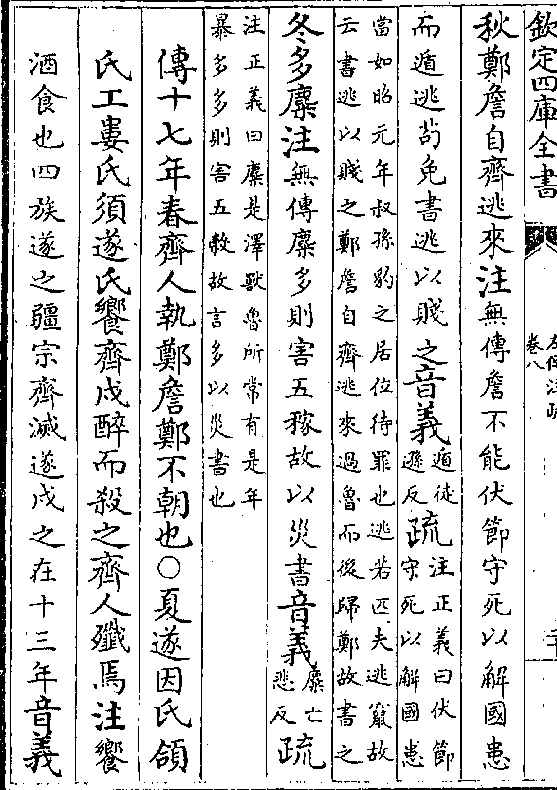 欽定四庫全書
卷八
秋鄭詹自齊逃來注無傳詹不能伏節守死以解國患
而遁逃苟免書逃以賤之音義遁徒遜反疏注正義曰伏節守死以解國患
當如昭元年叔孫豹之居位待罪也逃若匹夫逃竄故
云書逃以賤之鄭詹自齊逃來過魯而後歸鄭故書之
冬多麋注無傳麋多則害五稼故以災書音義麋亡悲反疏
注正義曰麋是澤獸魯所常有是年
暴多多則害五穀故言多以災書也
傳十七年春齊人執鄭詹鄭不朝也○夏遂因氏頜
氏工婁氏須遂氏饗齊戍醉而殺之齊人殲焉注饗
酒食也四族遂之疆宗齊滅遂戍之在十三年音義